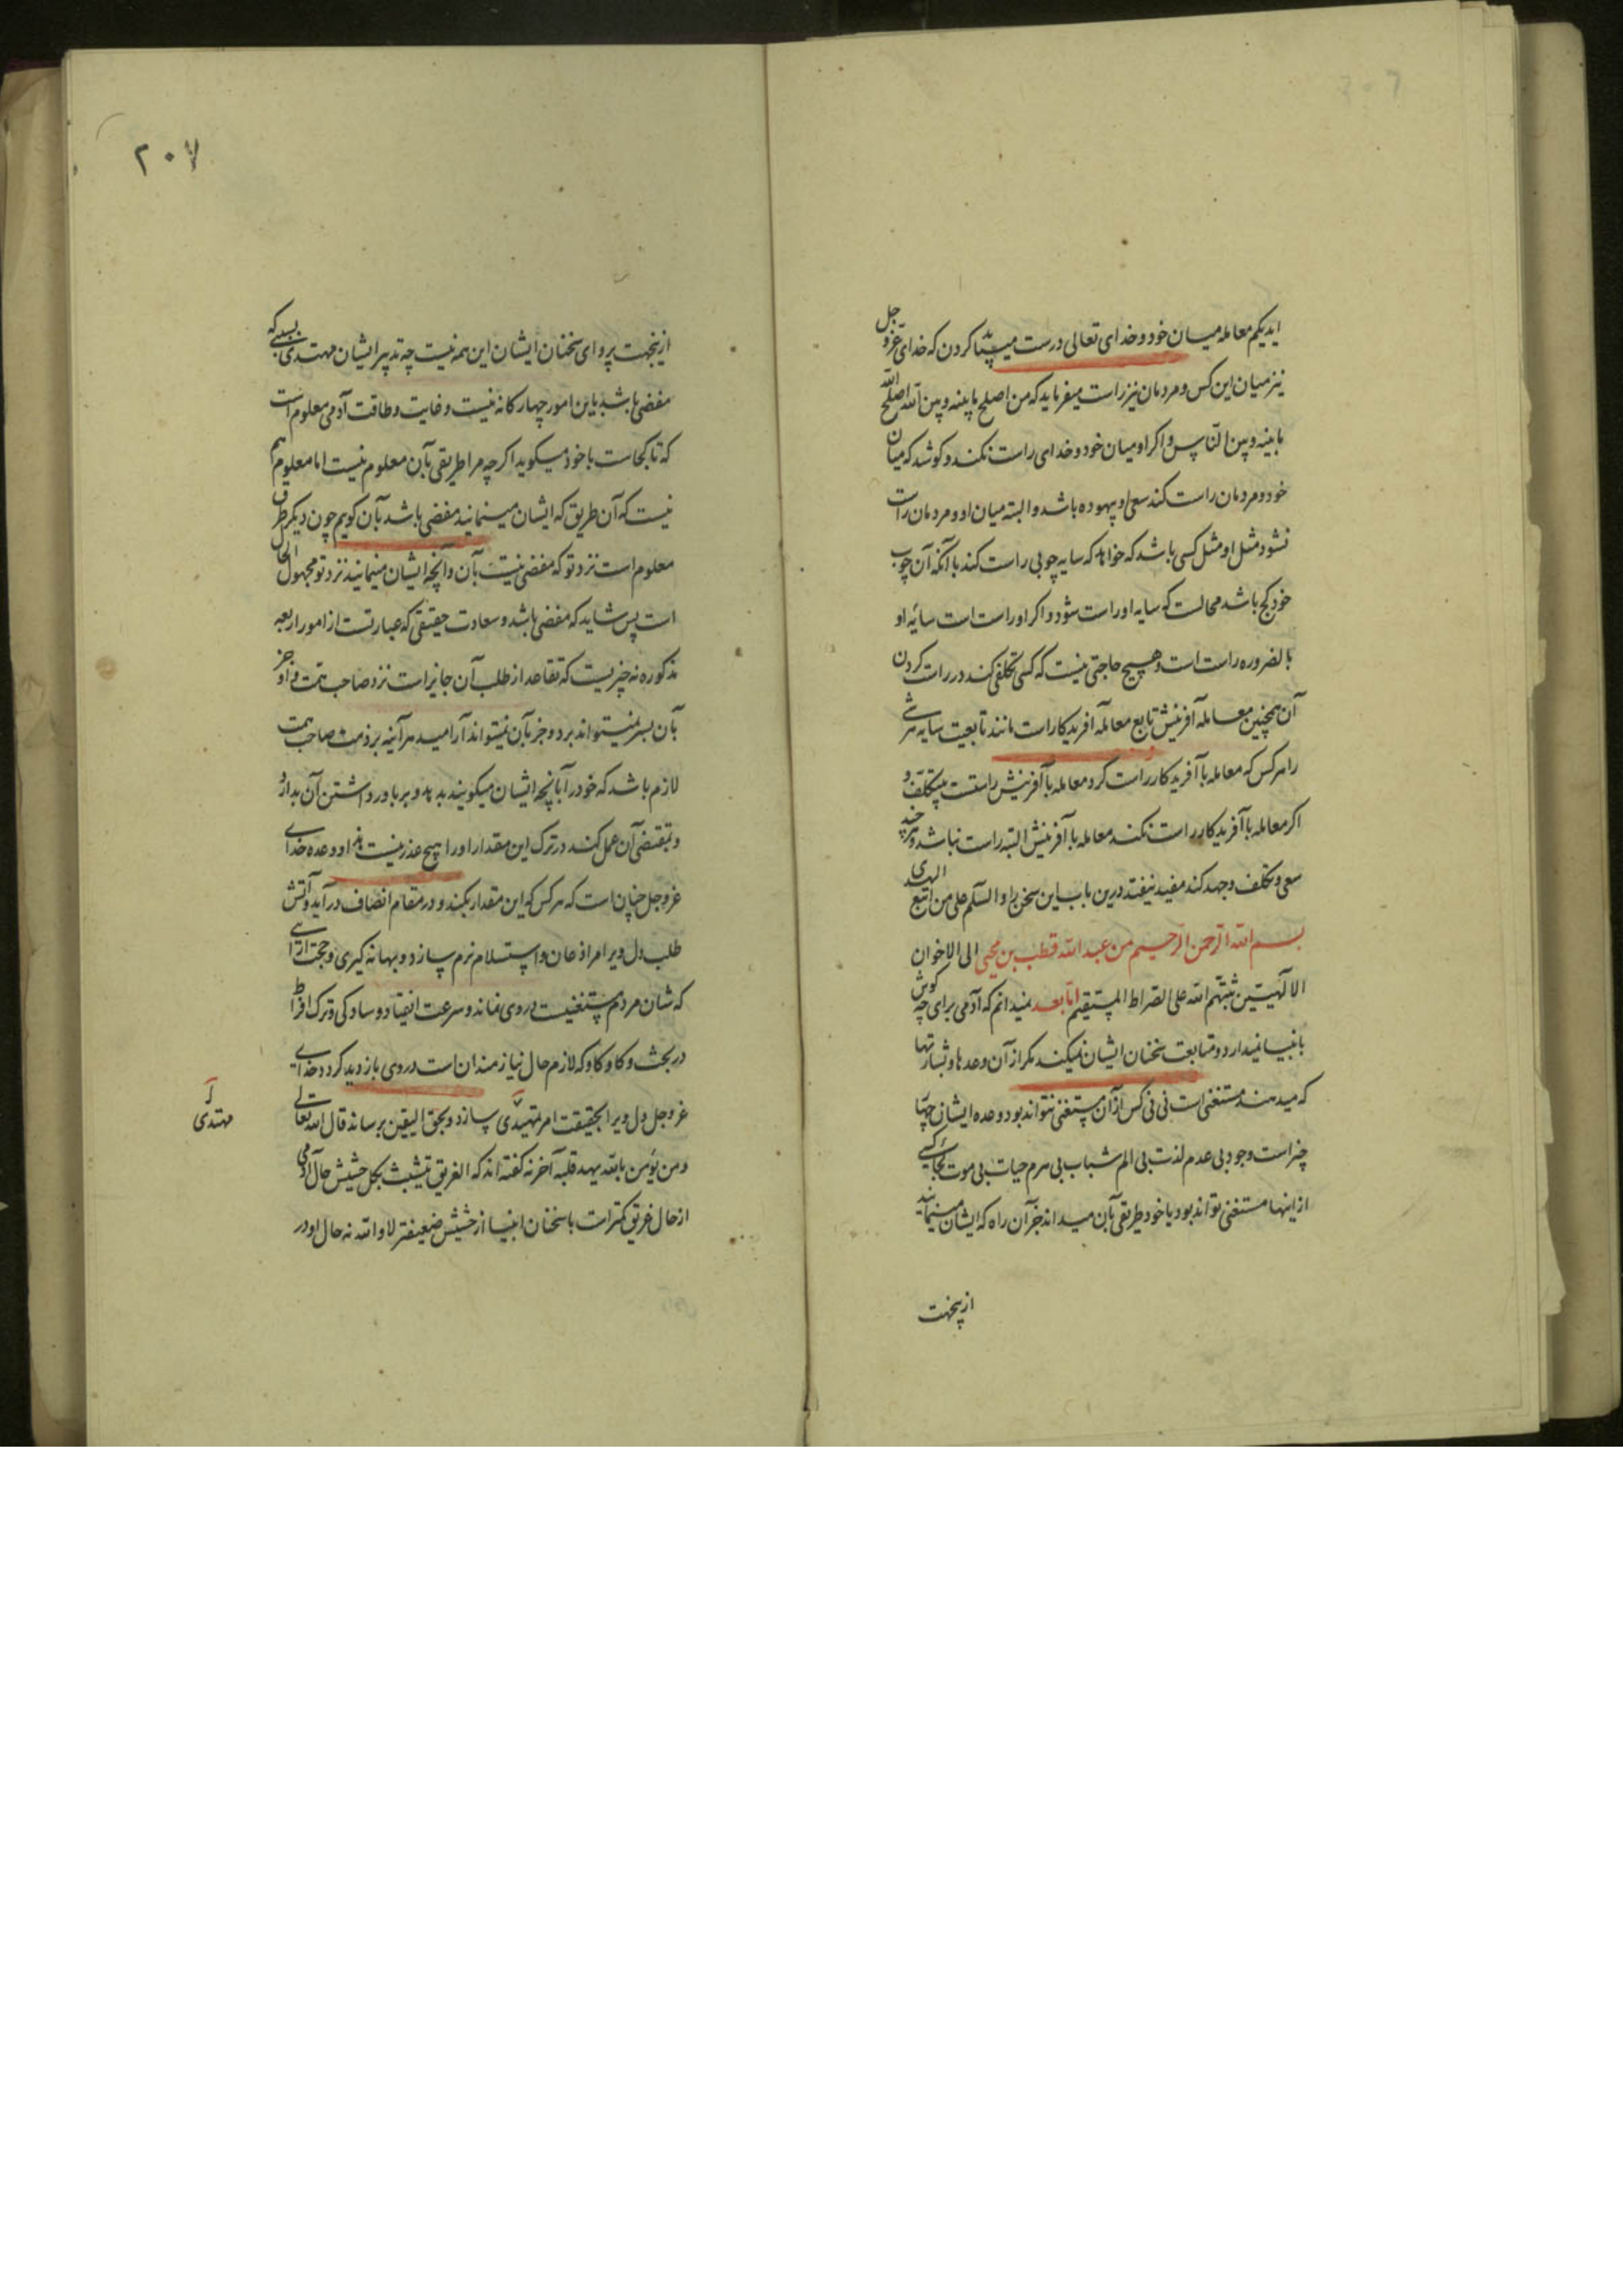 ایدیکم معامله میان خود و خدای تعالی درست میباید کردن که خدای عز و جل
نیز میان این کس و مردمان نیز راست میفرماید که من اصلح ما بینه و بین الله اصلح الله
ما بینه و بین الناس و اگر او میان خود و خدای راست نکند و کوشد که میان
خود و مردمان راست کند سعی او بیهوده باشد و البته میان او و مردمان راست
نشود مثل او مثل کسی باشد که خواهد که سایه چوبی راست کند با آنکه آن چوب
خود کج باشد محالست که سایه او راست شود و اگر او راست است سایه او
بالضروره راست است و هیچ حاجتی نیست که کسی تکلفی کند در راست کردن
آن همچنین معامله آفرینش تابع معامله آفریدکار است مانند تابعیت سایه هر شی
را هر کس که معامله با آفریدکار راست کرد معامله با آفرینش راستست بیتکلف و
اگر معامله با آفریدکار راست نکند معامله با آفرینش البته راست نباشد و هر چند
سعی و تکلف و جهد کند مفید نیفتد درین باب این سخن را و السلم علی من اتبع الهدی
بسم الله الرحمن الرحیم من عبد الله قطب بن محیی الی الاخوان
الالهیین ثبتهم الله علی الصراط المستقیم اما بعد نمیدانم که آدمی برای چه گوش
بانبیا نمیدارد و متابعت سخنان ایشان نمیکند مگر از آن وعدها و بشارتها
که میدهند مستغنی است نی نی کس از آن مستغنی نتواند بود وعده ایشان چهار
چیز است وجود بی عدم لذت بی الم شباب بی هرم حیات بی موت کسی
ازینها مستغنی تواند بود یا خود طریقی بآن میداند جز آن راه که ایشان مینمایند
ازینجهت
۲۰۷
ازینجهت پروای سخنان ایشان این همه نیست چه تدبیر ایشان مهتدی که
مفضی باشد باین امور چهارگانه نیست و غایت و طاقت آدمی معلوم است
که تا کجاست با خود میگوید اگر چه مرا طریقی بآن معلوم نیست اما معلوم هم
نیست که آن طریق که ایشان مینمایند مفضی باشد بآن گویم چون دیگر طرق
معلوم است نزد تو که مفضی نیست بآن و آنچه ایشان مینمایند نزد تو مجهول الحال
است پس شاید که مفضی باشد و سعادت حقیقی که عبارتست از امور اربعه
مذکوره نه چیزیست که تقاعد از طلب آن جایز است نزد صاحب همت و او جز
بآن بسر نمیتواند برد و جز بآن نمیتواند آرامید هر آینه بر ذمت صاحب همت
لازم باشد که خود را بآنچه ایشان میگویند بدهد و بر باور داشتن آن بدارد
و بمقتضی آن عمل کند در ترک این مقدار او را هیچ عذر نیست و وعده خدای
عز و جل چنان است که هر کس که این مقدار بکند و در مقام انصاف درآید و آتش
طلب دل ویرا مر اذعان و استسلام نرم سازد و بهانه گیری و حجت آرائی
که شان مردم مستغنیست در وی نماند و سرعت انقیاد و سادگی و ترک افراط
در بحث و کاوکاو که لازم حال نیازمندان است در وی بازدید گردد خدای
عز و جل دل ویرا بحقیقت امر مهتدی سازد و بحق الیقین برساند قال الله تعالی
و من یؤمن بالله یهد قلبه آخر نه گفته اند که الغریق یتشبث بکل حشیش حال آدمی
از حال غریق کمتر است یا سخنان انبیا از حشیش ضعیفتر لا والله نه حال او در
مهتدی